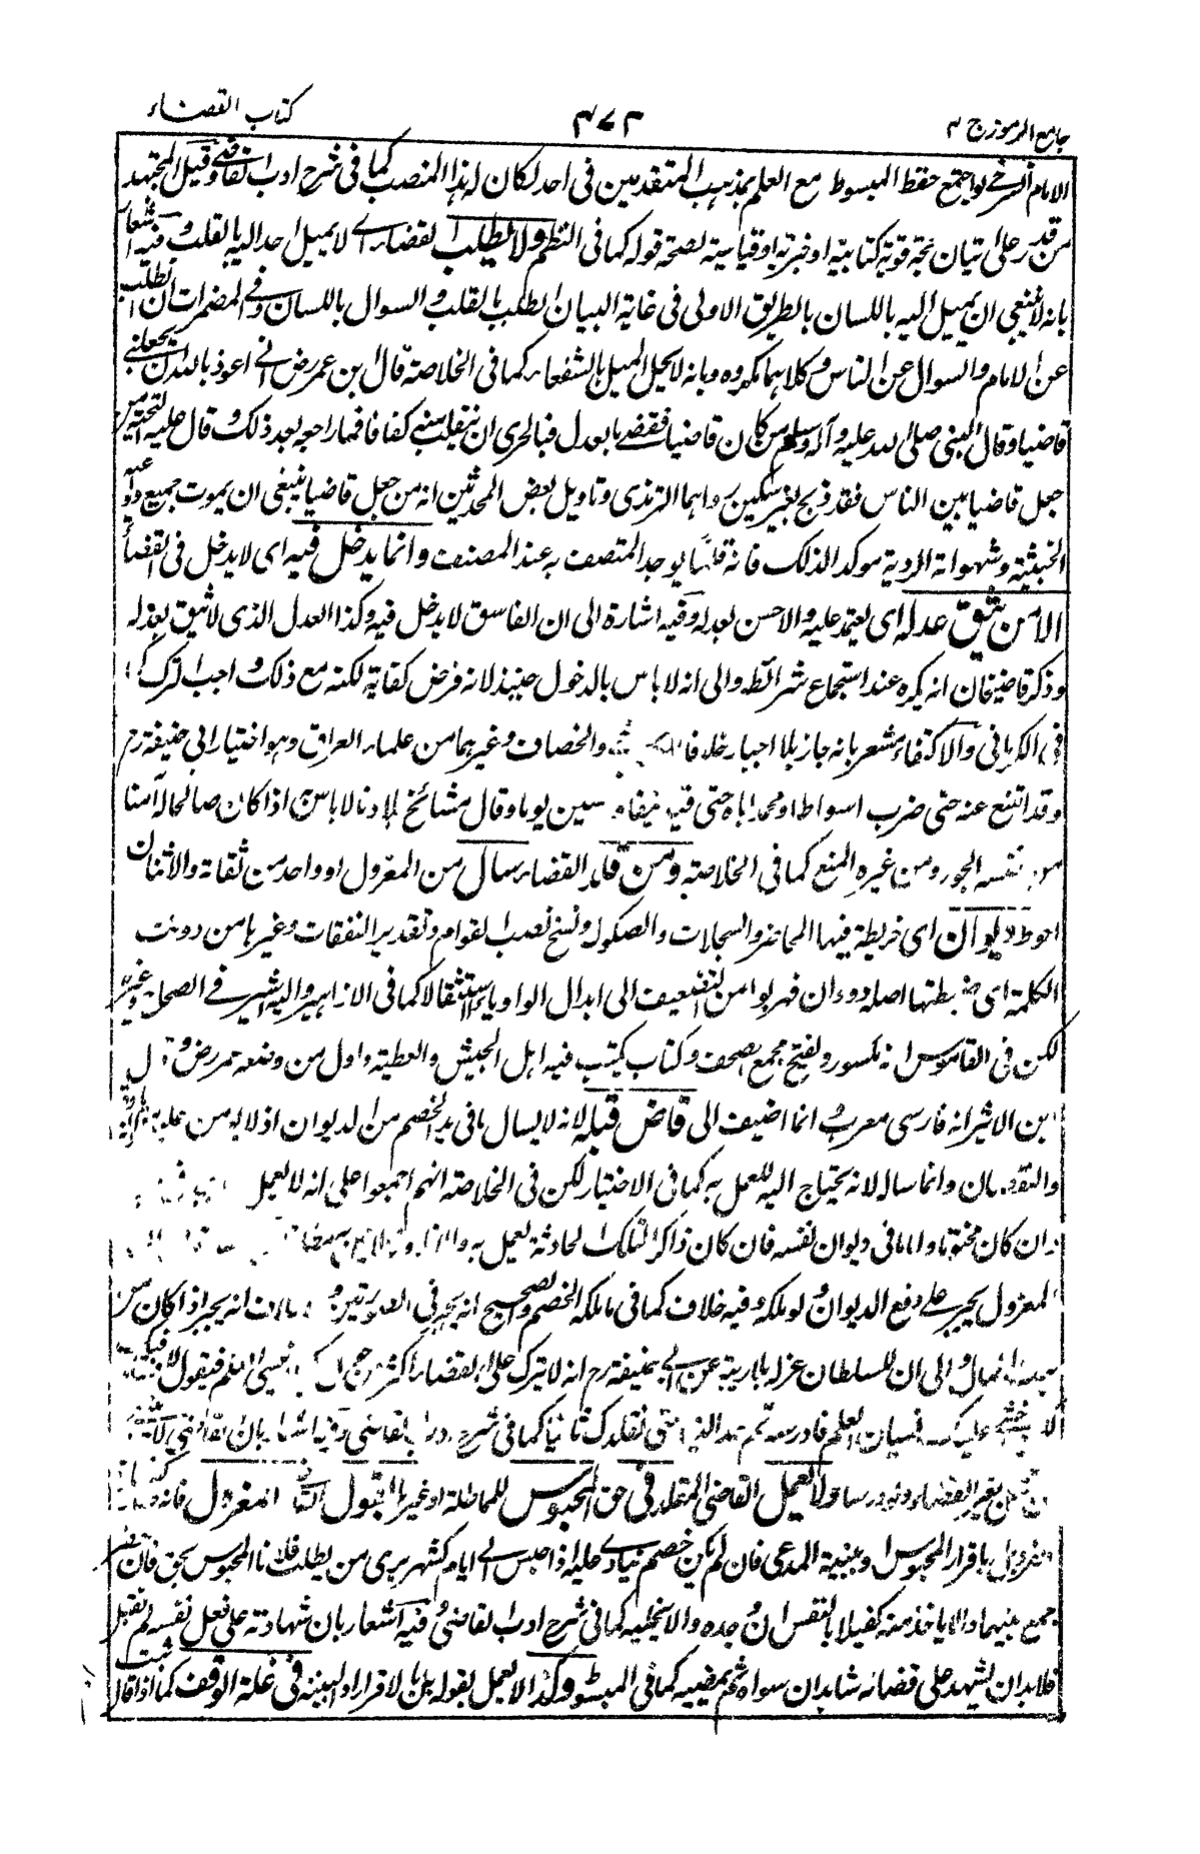 جامع الرموز ج ٢
٣٧٣
كتاب القضاء
الامام السرخسي لو اجتمع حفظ المبسوط مع العلم بمذهب المتقدمين في احد لكان لهذا المنصب كما في شرح ادب القاضي وقيل المجتهد
من قدر على اتيان حجة قوية كتابية او خبرية او قياسية لصحة قوله كما في النظم ولا يطلب القضاء اي لا يميل احد اليه بالقلب وفيه اشعار
بانه لا ينبغي ان يميل اليه باللسان بالطريق الاولى في غاية البيان الطلب بالقلب والسوال باللسان وفي المضمرات ان الطلب
عن الامام والسوال عن الناس وكلاهما مكروه وبانه لا يحل الميل بالشفعاء كما في الخلاصة قال ابن عمر رض اني اعوذ بالله ان يجعلني
قاضيا وقال النبي صلى الله عليه وآله وسلم من كان قاضيا فقضى بالعدل فبالحرى ان ينقلب منه كفافا فما راجعه بعد ذلك وقال عليه التحية من
جعل قاضيا بين الناس فقد ذبح بغير سكين رواهما الترمذي وتاويل بعض المحدثين انه من جعل قاضيا ينبغي ان يموت جميع دواعيه
الخبيثة وشهواته الردية موكد لذلك فانه قلما يوجد المتصف به عند المصنف وانما يدخل فيه اي لا يدخل في القضاء
الا من يثق عدله اي يعتمد عليه والاحسن بعدله وفيه اشارة الى ان الفاسق لا يدخل فيه وكذا العدل الذي لا يثق بعدله
وذكر قاضيخان انه يكره عند استجماع شرائطه والى انه لا باس بالدخول حينئذ لانه فرض كفاية لكنه مع ذلك واجب الترك كما
في الكرماني والاكتفاء مشعر بانه جاز بلا اجبار خلافا والخصاف وغيرهما من علماء العراق وهو اختيار ابي حنيفة رح
وقد امتنع عنه حتى ضرب اسواطا ومحمد اباه حتى قيد نيفا و سين يوما وقال مشائخ بلادنا لا باس به اذا كان صالحا له آمنا
من نفسه الجور ومن غيره المنع كما في الخلاصة ومن قلد القضاء سال من المعزول او واحد من ثقاته والاثنان
احوط ديوان اي خريطة فيها المحاضر والسجلات والصكوك ونسخ نصب القوام وتقدير النفقات وغيرها من دونت
الكلمة اي ضبطتها اصله دوان فهربوا من التضعيف الى ابدال الواو ياء استثقالا كما في الازاهير واليه اشير في الصحاح وغيره
لكن في القاموس انه مكسور وبفتح مجمع الصحف وكتاب يكتب فيه اهل الجيش والعطية واول من وضعه عمر رض و ل
ابن الاثير انه فارسي معرب وانما اضيف الى قاض قبله لانه لا يسال ما في يد الخصم من الديوان اذ لا يومن عليه
والنقصان وانما ساله لانه يحتاج اليه للعمل به كما في الاختيار لكن في الخلاصة انهم اجمعوا على انه لا يعمل
وان كان مختوما واما ما في ديوان نفسه فان كان ذاكرا لتلك الحادثة يعمل به والا
المعزول يجبر على دفع الديوان لو ملكه وفيه خلاف كما في ما ملكه الخصم والصحيح انه يجبر في الصورتين و انه يجبر اذا كان من
بيت المال والى ان للسلطان عزله بلا ريبة عن ابي حنيفة رح انه لا يترك على القضاء اكثر من حول كيلا ينسى العلم فيقول
لا نخشى عليك نسيان العلم فادرسه ثم عد الينا حتى نقلدك ثانيا كما في شرح ادب القاضي
بغير القضاء ولا يعمل القاضي المقلد في حق المحبوس للمماطلة او غيرها بقول القاضي المعزول فانه
بل باقرار المحبوس او ببينة المدعي فان لم يكن خصم ينادي عليه اذا جلس الى ايام كشهر يرى من يطلب فلانا المحبوس بحق فان حضر
جمع بينهما والا ياخذ منه كفيلا بالنفس ان وجده والا يخليه كما في شرح ادب القاضي وفيه اشعار بان شهادته على فعل نفسه لم تقبل
فلا بد ان يشهد على قضائه شاهدان سواه ثم يمضيه كما في المبسوط وكذا لا يعمل بقوله بل بالاقرار او البينة في غلة الوقف كما اذا قال